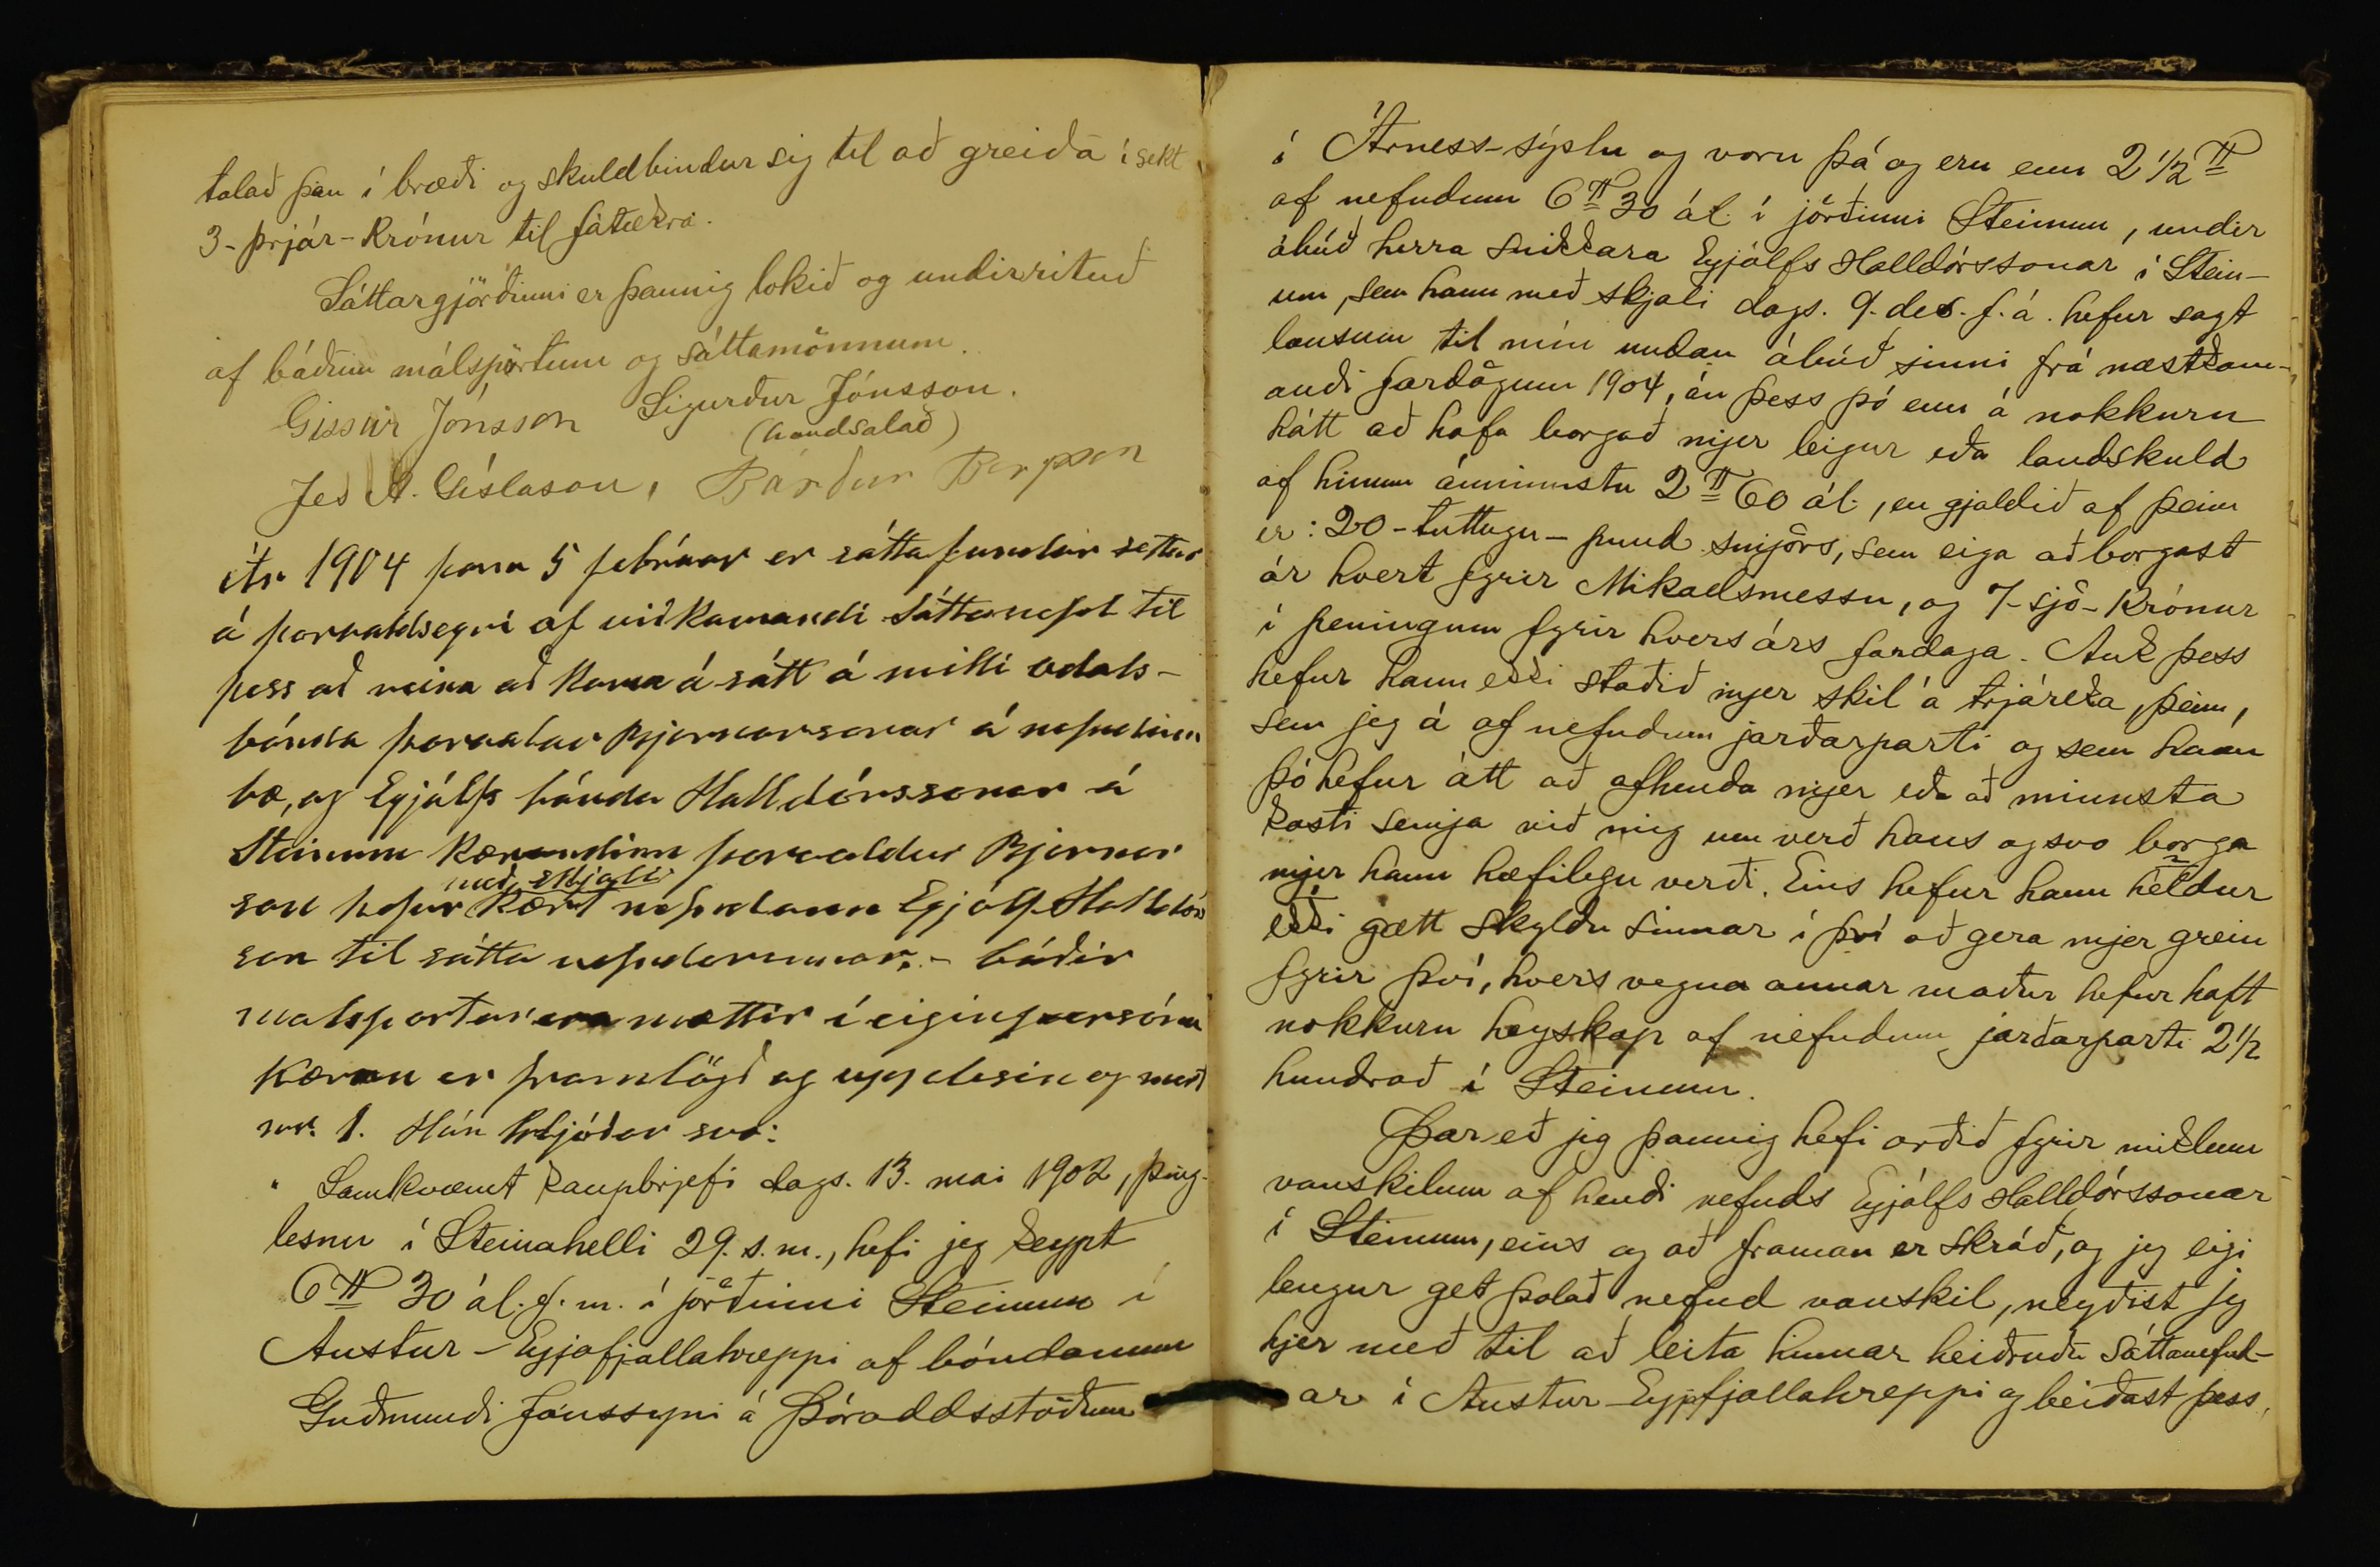 talað þau í bræði og skuldbindur sig til að greiða í sekt
3 - þrjár - krónur til fátækra.
Sáttargjörðinni er þannig lokið og undirrituð
af báðum málspörtum og sáttamönnum.
Gissur Jónsson Sigurður Jónsson.
(handsalað)
Jes A. Gíslason, Bárður Bergsson
Ár 1904 þann 5 febrúar er sáttafundur settur
á þorvaldseyri af viðkomandi sáttanefnd til
þess að reina að koma á sátt á milli odals-
bónda þorvaldar Bjarnarsonar á nefndum
bæ, og Eyjálfs bónda Halldórssonar á
Steinum Kærandinn þorvaldur Bjarnar
með skjali
son hefur kært nefndann Eyjólf Halldórs
son til sátta nefndarinnar. - báðir
malspartar eru mættir í eigin persónu
Kæran er framlögð og upplesin og merkt
nr. 1. Hún hljóðar svo:
" Samkvæmt kaupbrjefi dags. 13. mai 1902, þing-
lesnu í Steinahelli 29. s. m., hefi jeg keypt
6 H 30 ál. f. m. í jörðinni Steinum í
Austur - Eyjafjallahreppi af bóndanum
Guðmundi Jónssyni á Þóroddsstöðum
í Árness-sýslu og voru þá og eru enn 2 1/2 H
af nefndum 6 H 30 ál. í jörðinni Steinum, undir
ábúð herra snikkara Eyjólfs Halldórssonar í Stein-
um, sem hann með skjali dags. 9. des. f. á. hefur sagt
lausum til mín undan ábúð sinni frá næstkom-
andi fardögum 1904, án þess þó enn á nokkurn
hátt að hafa borgað mjer leigur eða landskuld
af hinum ánminnstu 2 H 60 ál., en gjaldið af þeim
er: 20 - tuttugu - pund smjörs, sem eiga að borgast
ár hvert fyrir Mikaelsmessu, og 7 - sjö - krónur
í peningum fyrir hvers árs fardaga. Auk þess
hefur hann ekki staðið mjer skil á trjáreka, þeim,
sem jeg á af nefndum jarðarparti og sem hann
þó hefur átt að afhenda mjer eða að minnsta
kosti semja við mig um verð hans og svo borga
mjer hann hæfilegu verði. Eins hefur hann heldur
ekki gætt skyldu sinnar í því að gera mjer grein
fyrir því, hvers vegna annar maður hefur haft
nokkurn heyskap af nefndum jarðarparti 2 1/2
hundrað í Steinum.
Þar eð jeg þannig hefi orðið fyrir miklum
vanskilum af hendi nefnds Eyjólfs Halldórssonar
í Steinum, eins og að framan er skráð, og jeg eigi
lengur get þolað nefnd vanskil, neyðist jeg
hjer með til að leita hinnar heiðruðu sáttanefnd-
ar í Austur - Eyjafjallahreppi og beiðast þess,